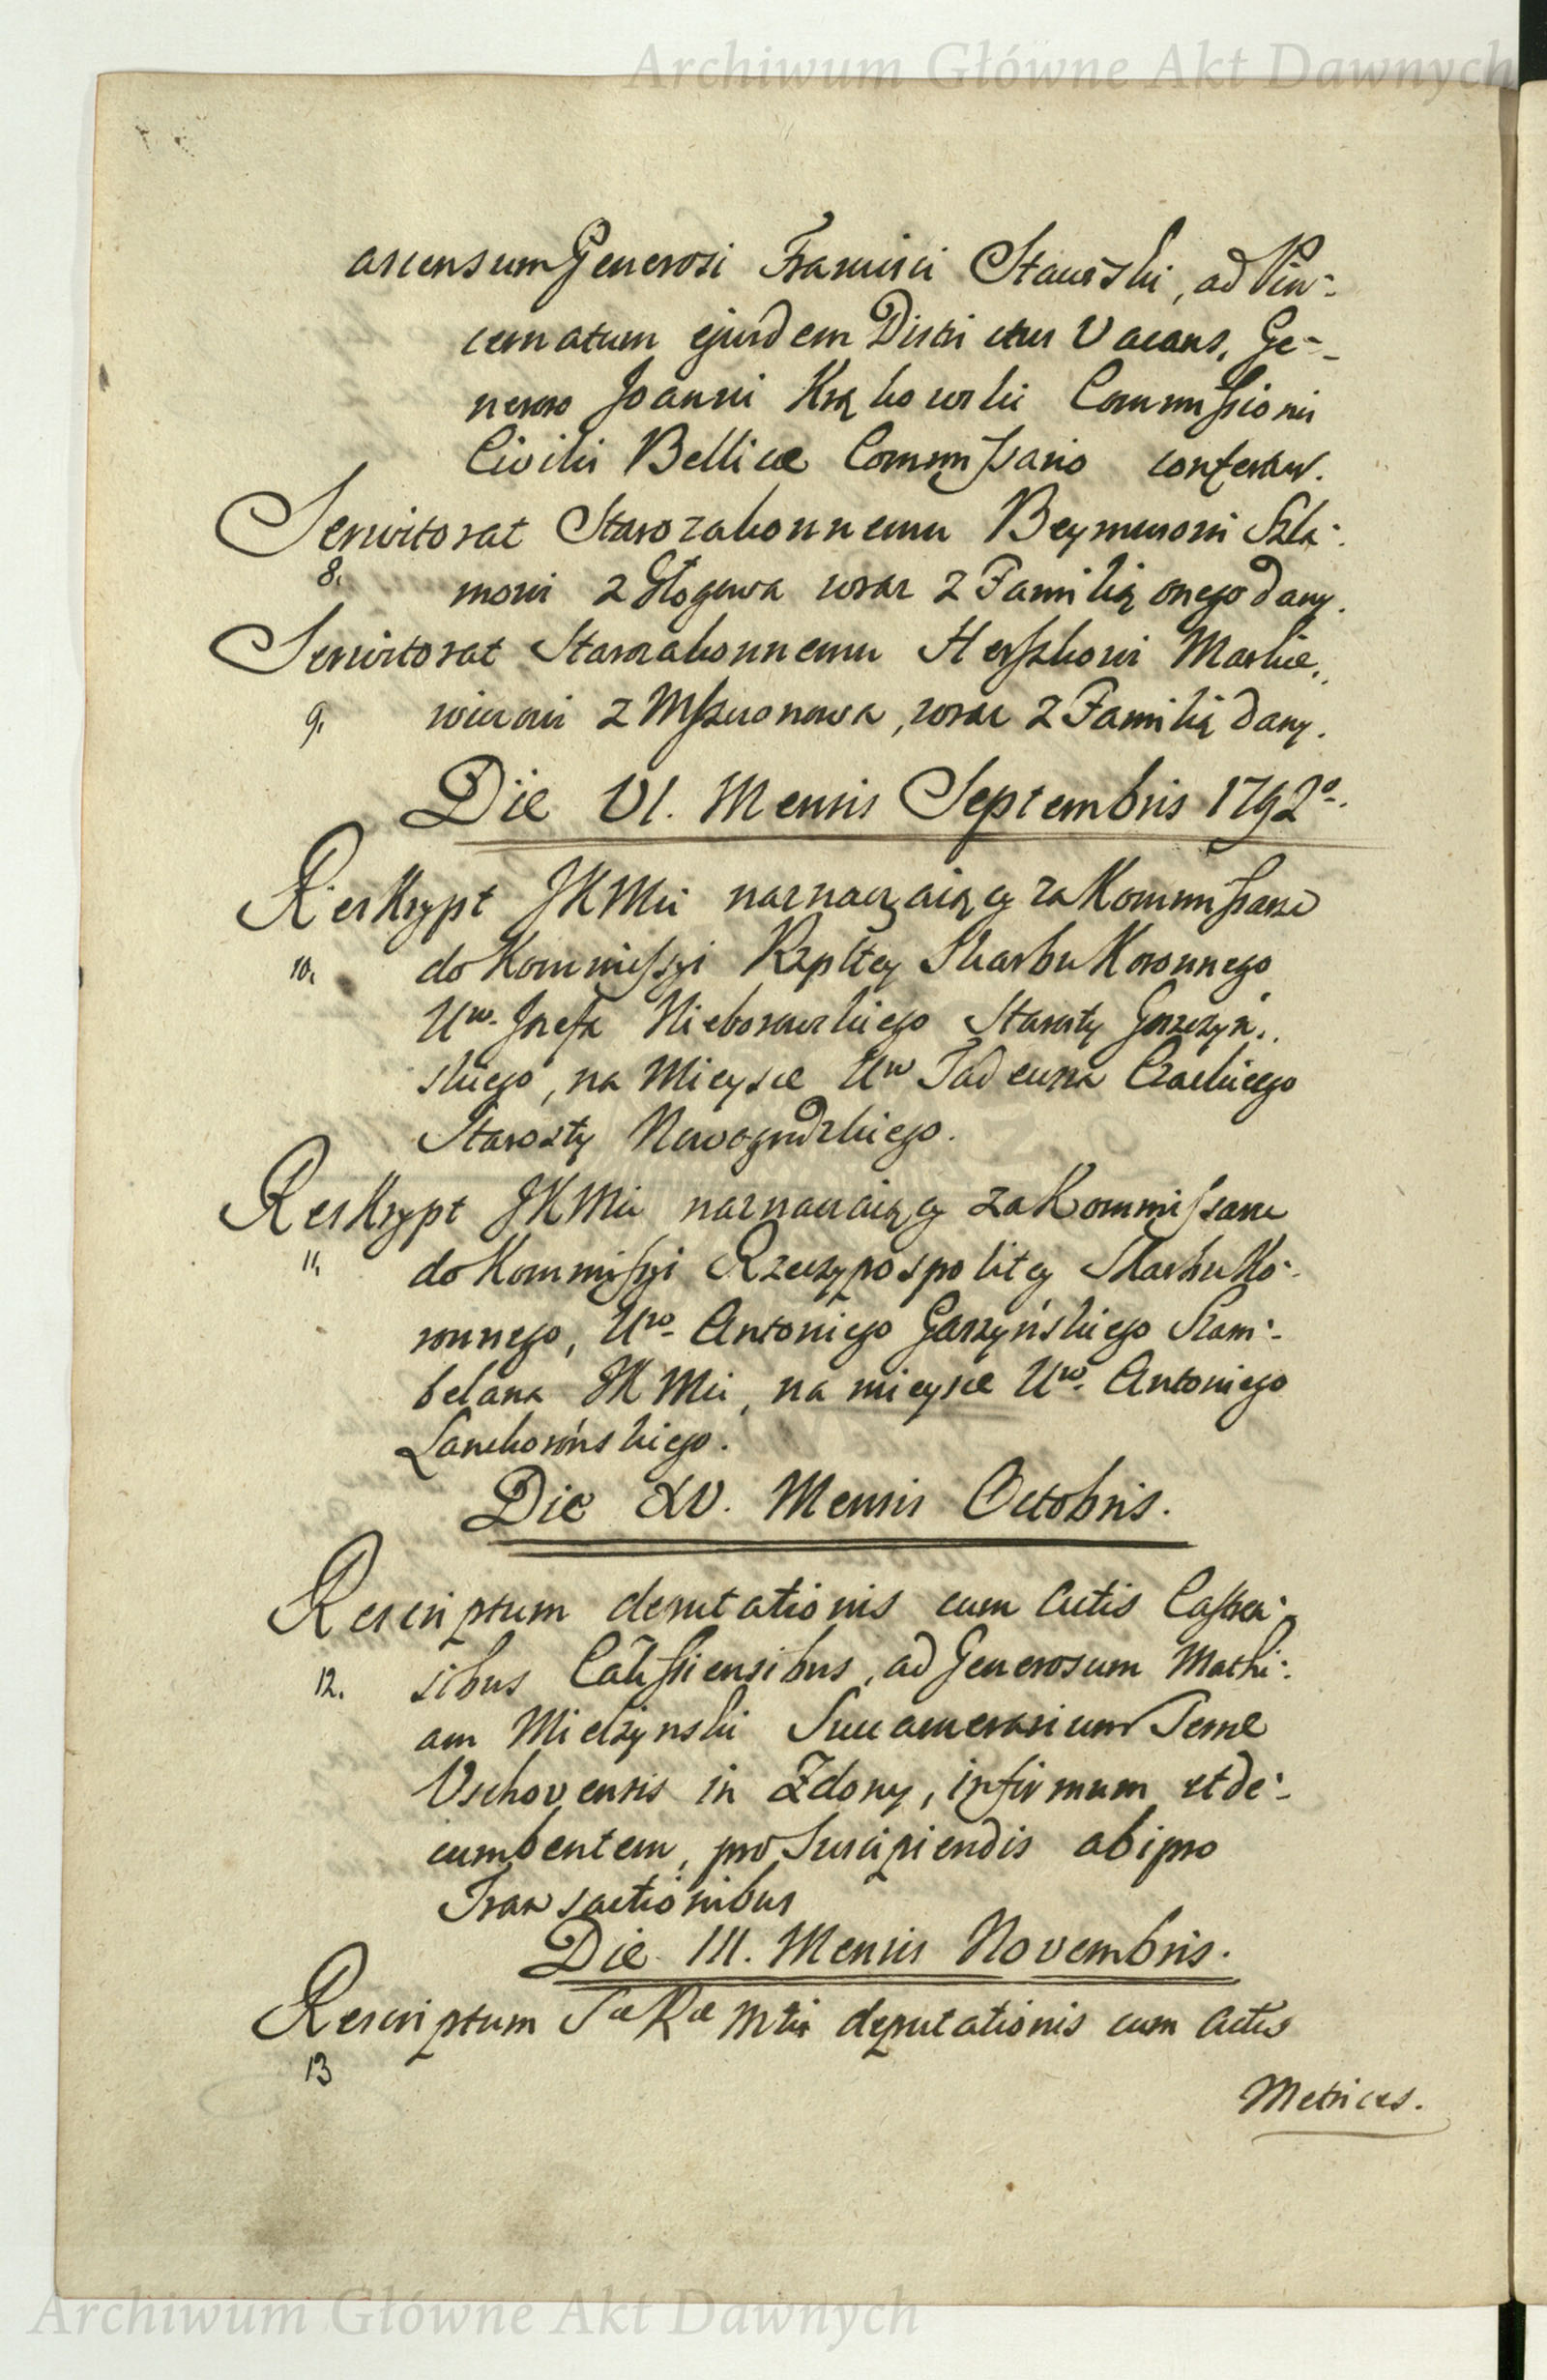 Archiwum Główne Akt Dawnych
ascensum Generosi Francisci Stawiski, ad Pin-
cernatum ejusdem Districtus Vacans, Ge-
neroso Joanni Krąkowski Commissionis
Civilis Bellicae Commissario confertur.
Serwitorat Starozakonnemu Szla-
8. mowi z Głogowa wraz z Familią onego dany.
Serwitorat Starozakonnemu Herszkowi Markie-
9. wiczowi z Mszczonowa, wraz z Familią dany.
Die VI. Mensis Septembris 1792o.
Reskrypt JKMci naznaczaiący za Kommissarza
10. do Kommissyi Rzpltey Skarbu Koronnego
Uro Jozefa Nieborowskiego Starosty
skiego, na Mieysce Uro Tadeusza Czackiego
Starosty Nowogrodzkiego.
Reskrypt JKMci naznaczaiący za Kommissarza
11. do Kommissyi Rzeczypospolitey Skarbu Ko-
ronnego, Uro Antoniego Garzyńskiego Szam-
belana JKMci, na mieysce Uro Antoniego
Lanckorońskiego.
Die XV. Mensis Octobris.
Rescriptum deputationis cum Actis Castren-
12. sibus Calissiensibus, ad Generosum Mathi-
am Mielzynski Succamerarium Terrae
Vschovensis in Zdony, infirmum et de-
cumbentem, pro Suscipiendis ab ipso
Transactionibus
Die III. Mensis Novembris.
Rescriptum Sae Rae Mtis deputationis cum Actis
13
Metrices.
Archiwum Główne Akt Dawnych